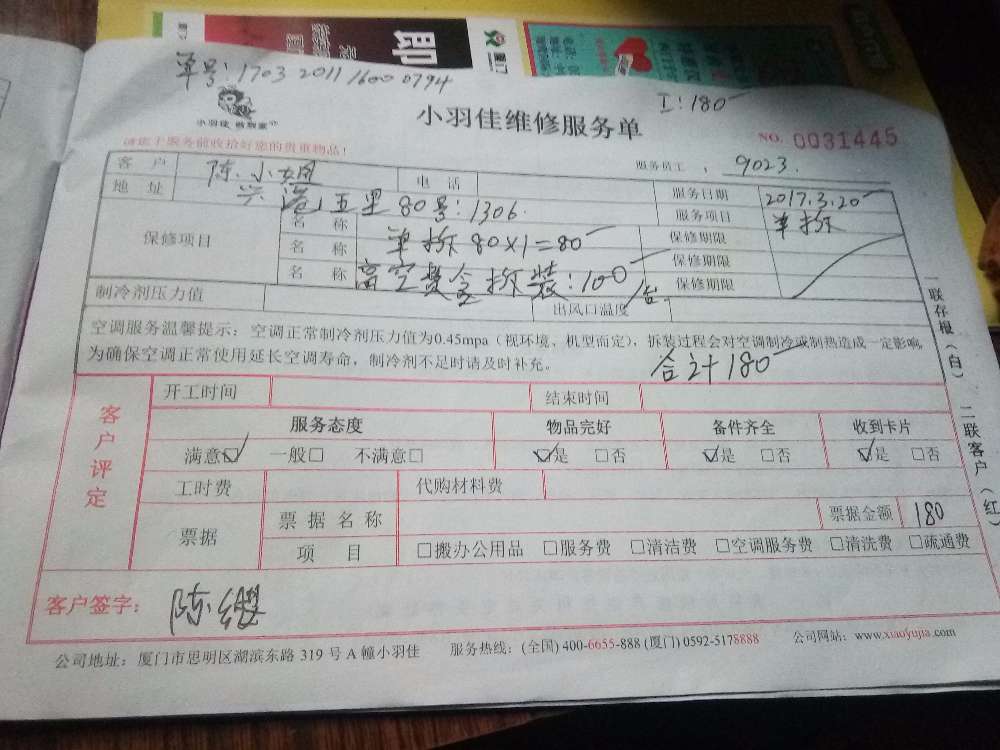 单号:1703 2011 1600 0794
工:180
小羽佳 
小羽佳维修服务单
NO. 0031445
请您于服务前收拾好您的贵重物品!
服务员工: 9023.
客户 陈小姐 电话 服务日期 2017.3.20
地址 兴港五里80号:1306. 服务项目 单拆
保修项目 名称 单拆80X1=80 保修期限
名称 高空费含拆装:100/台. 保修期限
名称 保修期限
制冷剂压力值 出风口温度
空调服务温馨提示:空调正常制冷剂压力值为0.45mpa(视环境、机型而定),拆装过程会对空调制冷或制热造成一定影响,
为确保空调正常使用延长空调寿命,制冷剂不足时请及时补充。
合计180
一联存根(白) 二联客户(红)
客户评定
开工时间 结束时间
服务态度 物品完好 备件齐全 收到卡片
满意☑ 一般□ 不满意□ ☑是 □否 ☑是 □否 ☑是 □否
工时费 代购材料费
票据 票据名称 票据金额 180
项目 □搬办公用品 □服务费 □清洁费 □空调服务费 □清洗费 □疏通费
客户签字: 陈缨
公司地址:厦门市思明区湖滨东路 319 号 A 幢小羽佳 服务热线:(全国) 400-6655-888 (厦门) 0592-5178888 公司网站:www.xiaoyujia.com